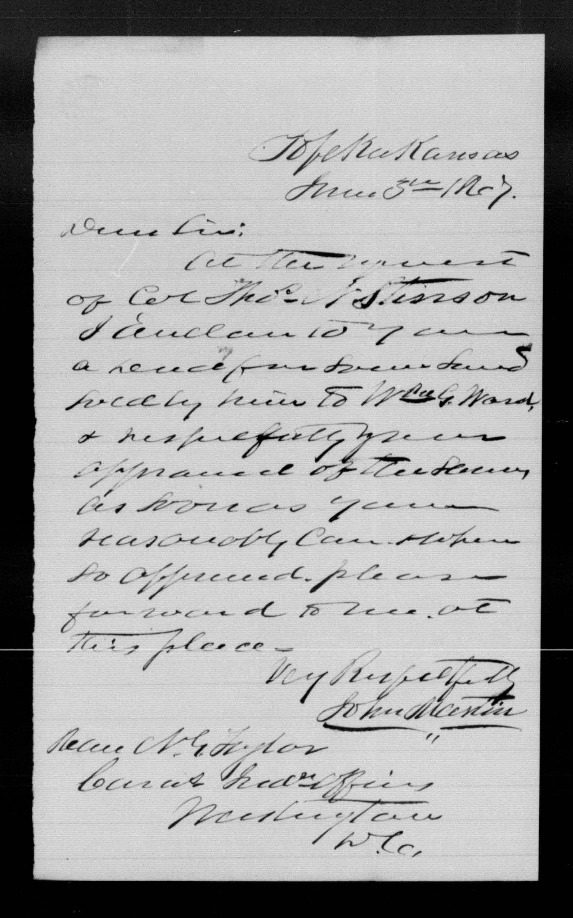 Topeka Kansas
June 5th 1867.
Dear Sir:
At the request
of Col Thos. N. Stinson
I enclose to you
a deed for some land
sold by him to Wm G. Ward,
& respectfully your
approval of the same,
as soon as you
reasonably can. & when
so approved. please
forward to me. at
this place—
Very Respectfully
John Martin
N. G. Taylor
Indn Affairs
Washington
D.C.